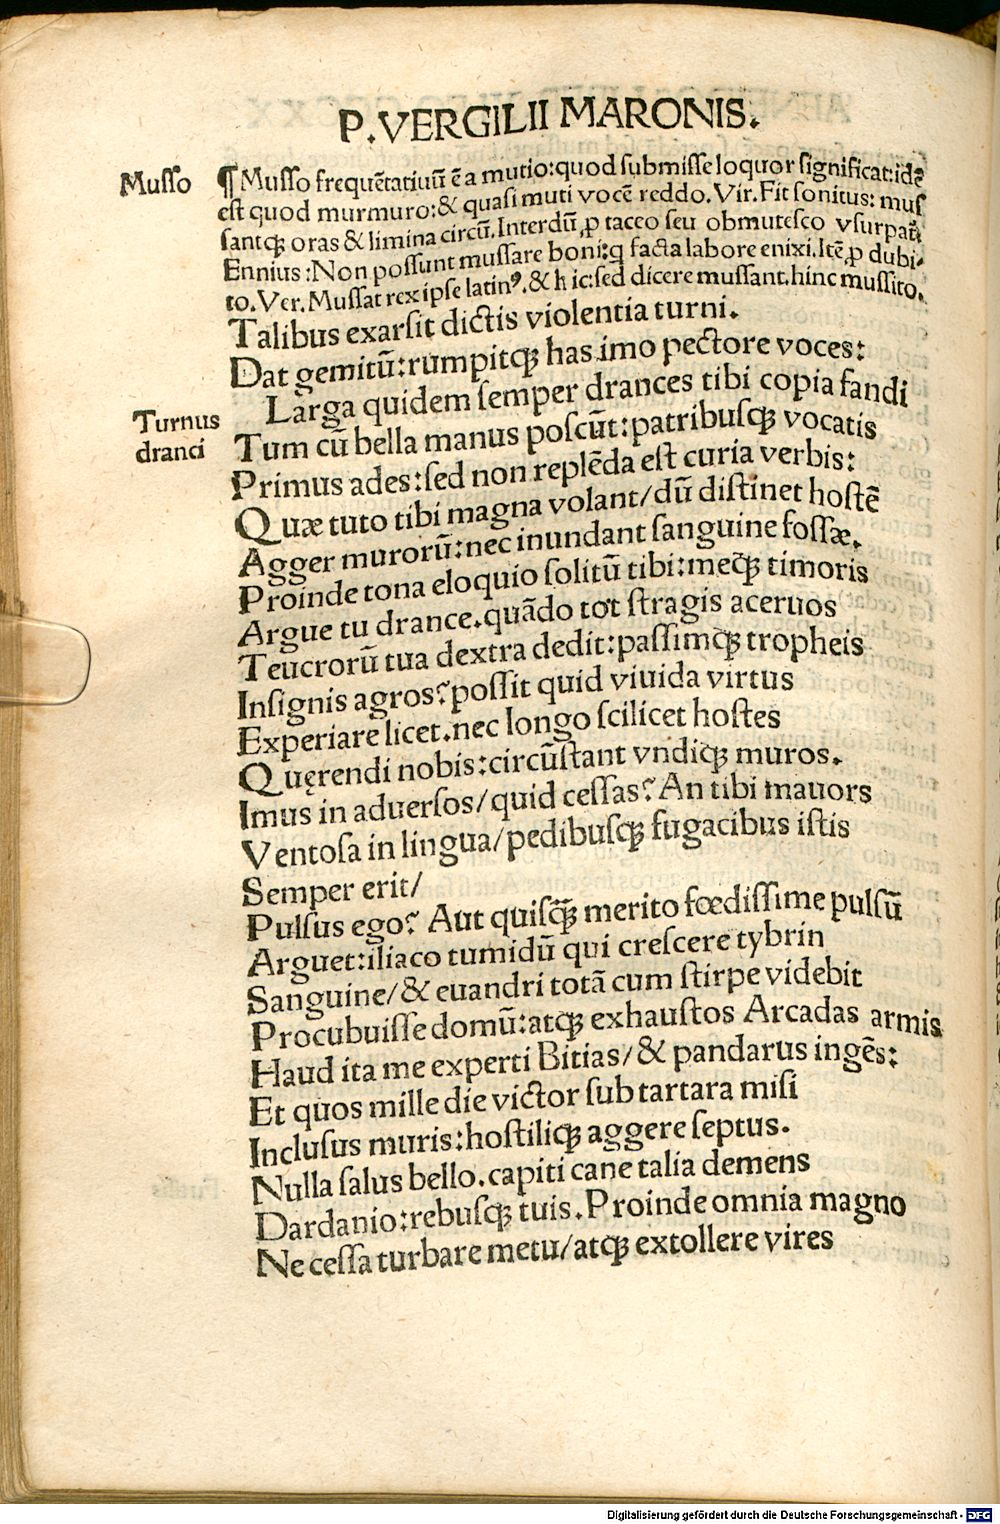 P. VERGILII MARONIS.
Musso
¶ Musso frequētatiuū ē a mutio: quod submisse loquor significat: idē
est quod murmuro: & quasi muti vocē reddo. Vir. Fit sonitus: mus
santqꝫ oras & limina circū. Interdū, ꝓ taceo seu obmutesco vsurpat̄.
Ennius: Non possunt mussare boni: q facta labore enixi. Itē, ꝓ dubi-
to. Ver. Mussat rex ipse latinꝰ. & hic: sed dicere mussant. hinc mussito.
Talibus exarsit dictis violentia turni.
Dat gemitū: rumpitqꝫ has imo pectore voces:
Turnus
dranci
Larga quidem semper drances tibi copia fandi
Tum cū bella manus poscūt: patribusqꝫ vocatis
Primus ades: sed non replēda est curia verbis:
Quæ tuto tibi magna volant/ dū distinet hostē
Agger murorū: nec inundant sanguine fossæ.
Proinde tona eloquio solitū tibi: meqꝫ timoris
Argue tu drance. quādo tot stragis aceruos
Teucrorū tua dextra dedit: passimqꝫ tropheis
Insignis agros? possit quid viuida virtus
Experiare licet. nec longo scilicet hostes
Quęrendi nobis: circūstant vndiqꝫ muros.
Imus in aduersos/ quid cessas? An tibi mauors
Ventosa in lingua/ pedibusqꝫ fugacibus istis
Semper erit/
Pulsus ego? Aut quisqꝫ̄ merito fœdissime pulsū
Arguet: iliaco tumidū qui crescere tybrin
Sanguine/ & euandri totā cum stirpe videbit
Procubuisse domū: atqꝫ exhaustos Arcadas armis
Haud ita me experti Bitias/ & pandarus ingēs:
Et quos mille die victor sub tartara misi
Inclusus muris: hostiliqꝫ aggere septus.
Nulla salus bello. capiti cane talia demens
Dardanio: rebusqꝫ tuis. Proinde omnia magno
Ne cessa turbare metu/ atqꝫ extollere vires
Digitalisierung gefördert durch die Deutsche Forschungsgemeinschaft - DFG